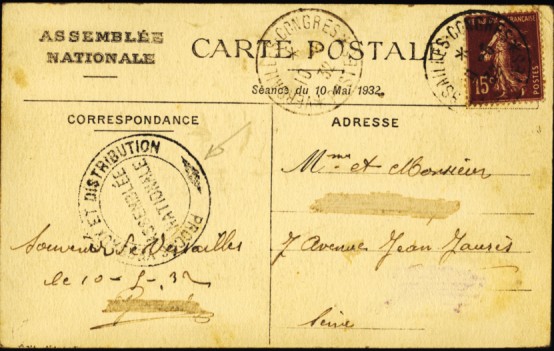 ASSEMBLÉE
NATIONALE
CARTE POSTALE
Séance du 10 Mai 1932.
VERSAILLES-CONGRES
10
32
VERSAILLES-CONGRES
FRANÇAISE
15
POSTES
CORRESPONDANCE
ADRESSE
ET DISTRIBUTION
ASSEMBLÉE
NATIONALE
Souvenir de Versailles
le 10-5-32
Mme et Monsieur
7 Avenue Jean Jaurès
Seine